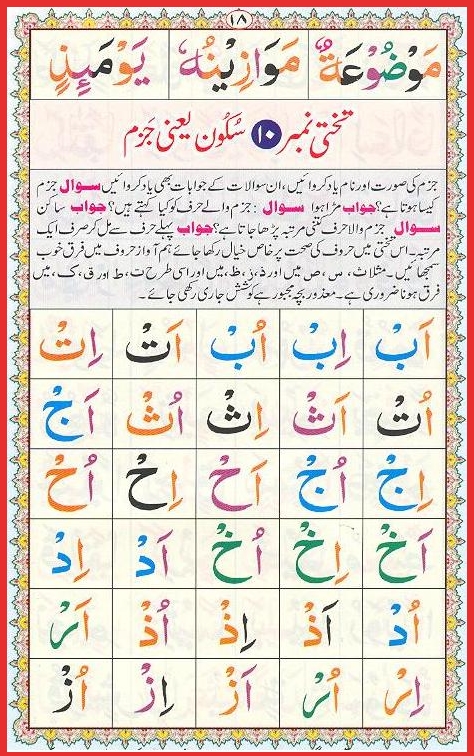 ۱۸
مَوْضُوْعَةٌ مَوَازِيْنُهٗ يَوْمَئِذٍ
تختی نمبر ۱۰ سُکُون یعنی جَزم
جزم کی صورت اور نام یاد کروائیں، ان سوالات کے جوابات بھی یاد کروائیں سوال جزم
کیسا ہوتا ہے؟ جواب مڑا ہوا سوال : جزم والے حرف کو کیا کہتے ہیں؟ جواب ساکن
سوال جزم والا حرف کتنی مرتبہ پڑھا جاتا ہے؟ جواب پہلے حرف سے مل کر صرف ایک
مرتبہ۔ اس تختی میں حروف کی صحت پر خاص خیال رکھا جائے ہم آواز حروف میں فرق خوب
سمجھائیں۔ مثلاً ث، س، ص میں اور ذ، ز، ظ، میں اور اسی طرح ت، ط اور ق، ک، میں
فرق ہونا ضروری ہے۔ معذور بچہ مجبور ہے کوشش جاری رکھی جائے۔
اَبْ اِبْ اُبْ اَتْ اِتْ
اُتْ اَثْ اِثْ اُثْ اَجْ
اِجْ اُجْ اَحْ اِحْ اُحْ
اَخْ اِخْ اُخْ اَدْ اِدْ
اُدْ اَذْ اِذْ اُذْ اَرْ
اِرْ اُرْ اَزْ اِزْ اُزْ